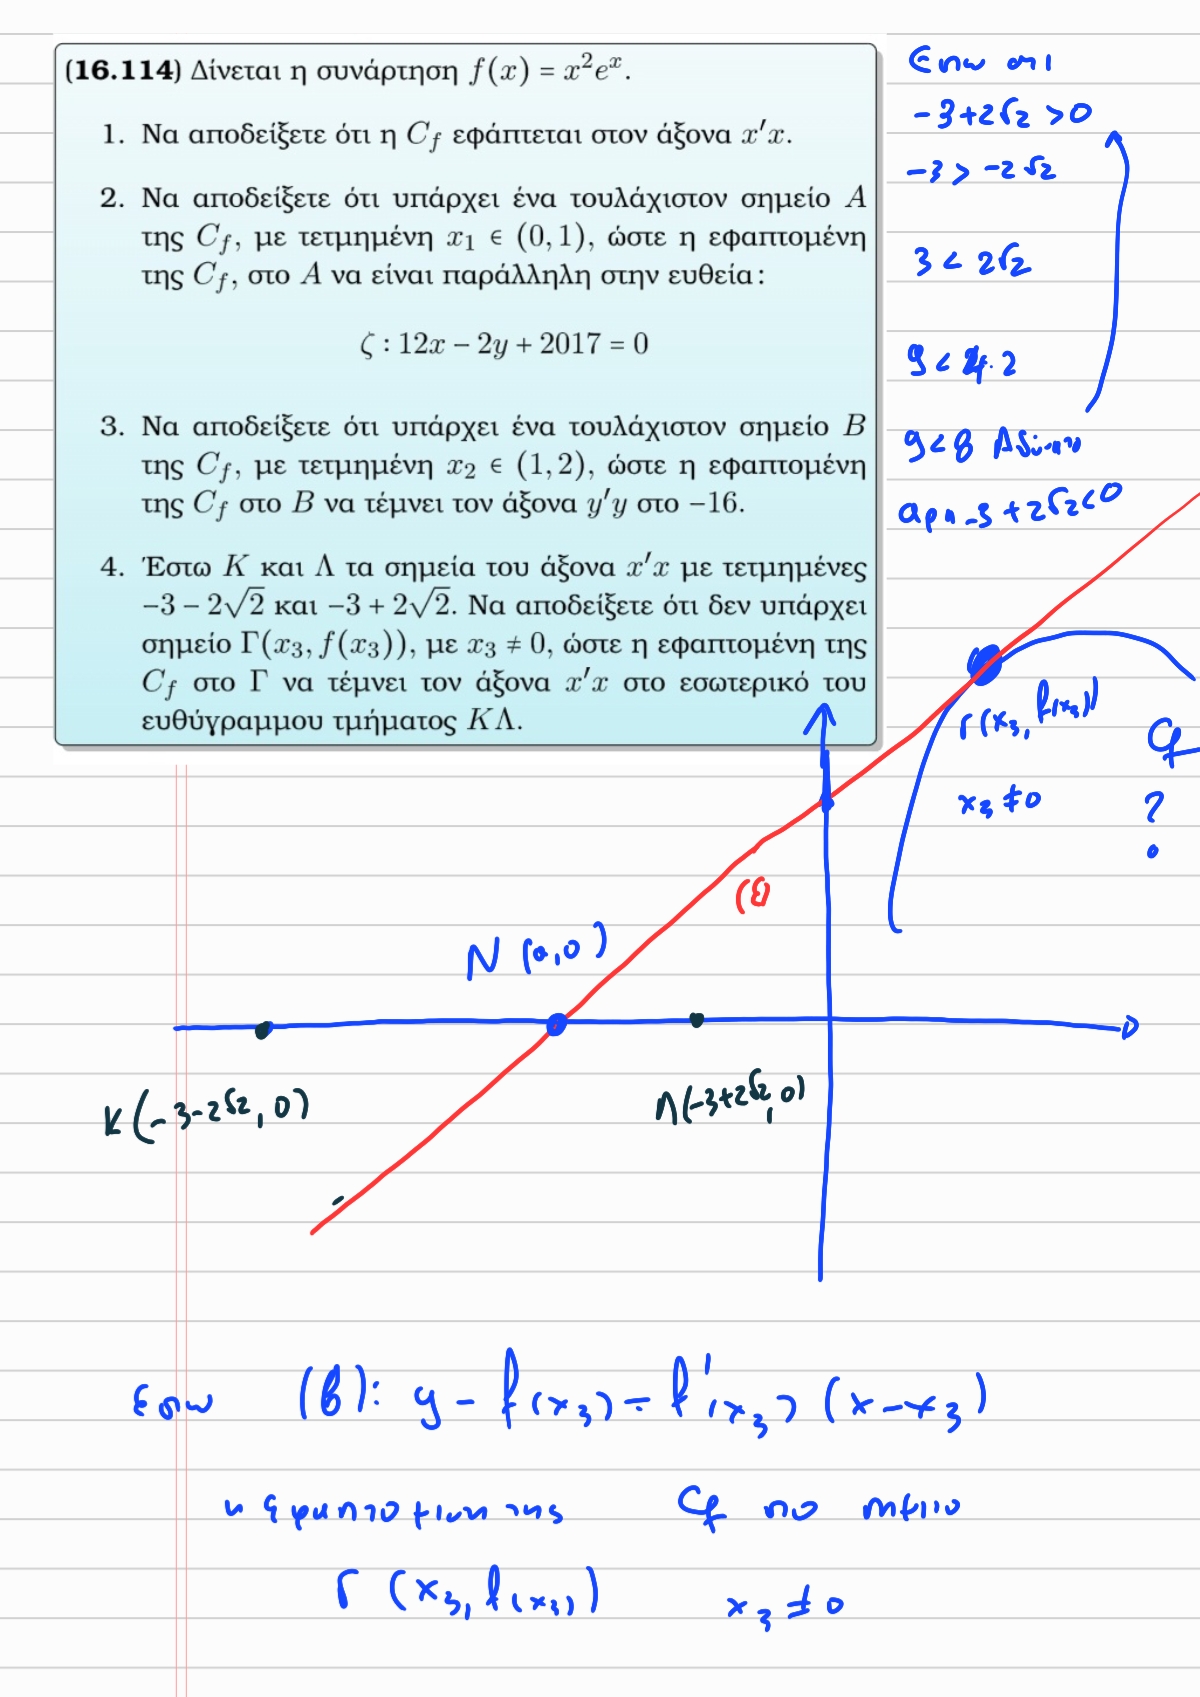 (16.114) Δίνεται η συνάρτηση f(x) = x²eˣ.
1. Να αποδείξετε ότι η C_f εφάπτεται στον άξονα x′x.
2. Να αποδείξετε ότι υπάρχει ένα τουλάχιστον σημείο A
της C_f, με τετμημένη x₁ ∈ (0, 1), ώστε η εφαπτομένη
της C_f, στο A να είναι παράλληλη στην ευθεία:
ζ : 12x − 2y + 2017 = 0
3. Να αποδείξετε ότι υπάρχει ένα τουλάχιστον σημείο B
της C_f, με τετμημένη x₂ ∈ (1, 2), ώστε η εφαπτομένη
της C_f στο B να τέμνει τον άξονα y′y στο −16.
4. Έστω K και Λ τα σημεία του άξονα x′x με τετμημένες
−3 − 2√2 και −3 + 2√2. Να αποδείξετε ότι δεν υπάρχει
σημείο Γ(x₃, f(x₃)), με x₃ ≠ 0, ώστε η εφαπτομένη της
C_f στο Γ να τέμνει τον άξονα x′x στο εσωτερικό του
ευθύγραμμου τμήματος KΛ.
Εστω οτι
-3+2√2 >0
-3 > -2√2
3 < 2√2
9 < 4·2
9<8 Αδύνατο
αρα -3+2√2<0
Γ(x₃, f(x₃))
C_f
x₃ ≠0
?
(ε)
N (α,0)
K(-3-2√2, 0)
Λ(-3+2√2, 0)
Εστω (ε): y - f(x₃) = f′(x₃) (x-x₃)
η εφαπτομενη της C_f στο σημειο
Γ (x₃, f(x₃)) x₃ ≠ 0